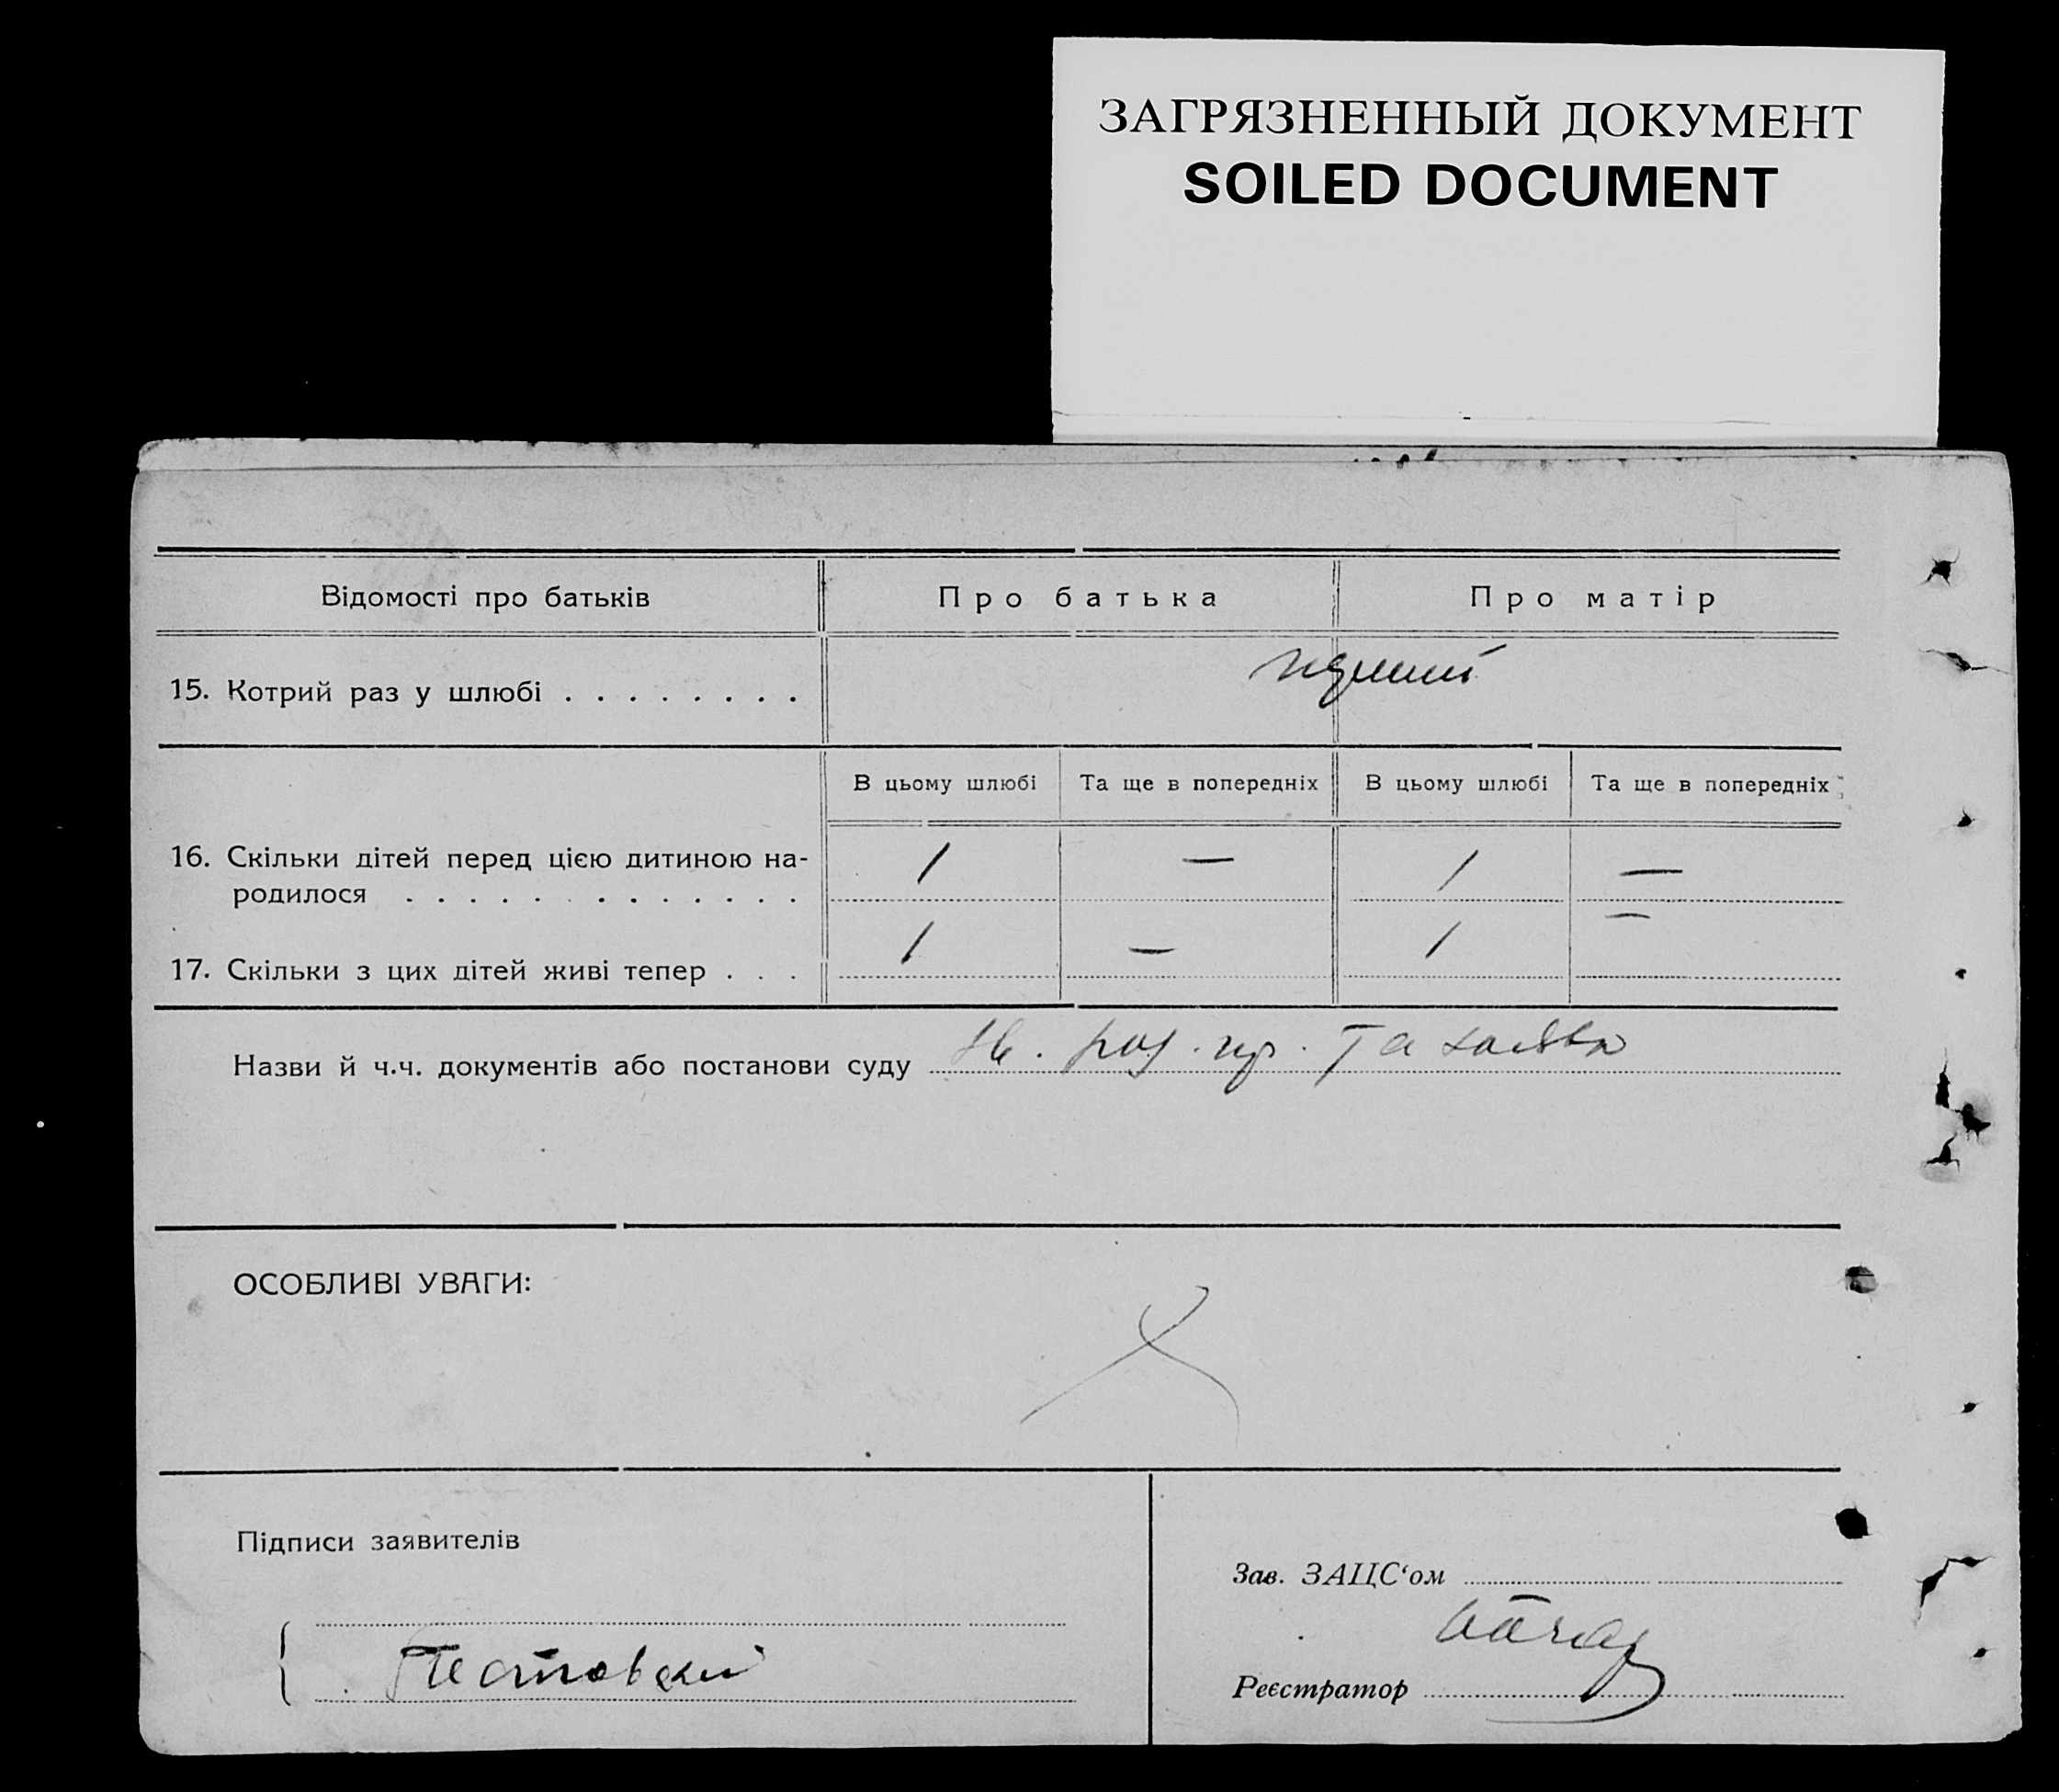 ЗАГРЯЗНЕННЫЙ ДОКУМЕНТ
SOILED DOCUMENT
Відомості про батьків Про батька Про матір
15. Котрий раз у шлюбі . . . . . . . .
В цьому шлюбі Та ще в попередніх В цьому шлюбі Та ще в попередніх
16. Скільки дітей перед цією дитиною на- 1 — 1 —
родилося . . . . . . . . . . . . .
17. Скільки з цих дітей живі тепер . . . 1 — 1 —
Назви й ч.ч. документів або постанови суду та
ОСОБЛИВІ УВАГИ:
Підписи заявителів
Зав. ЗАЦС‘ом
Реєстратор